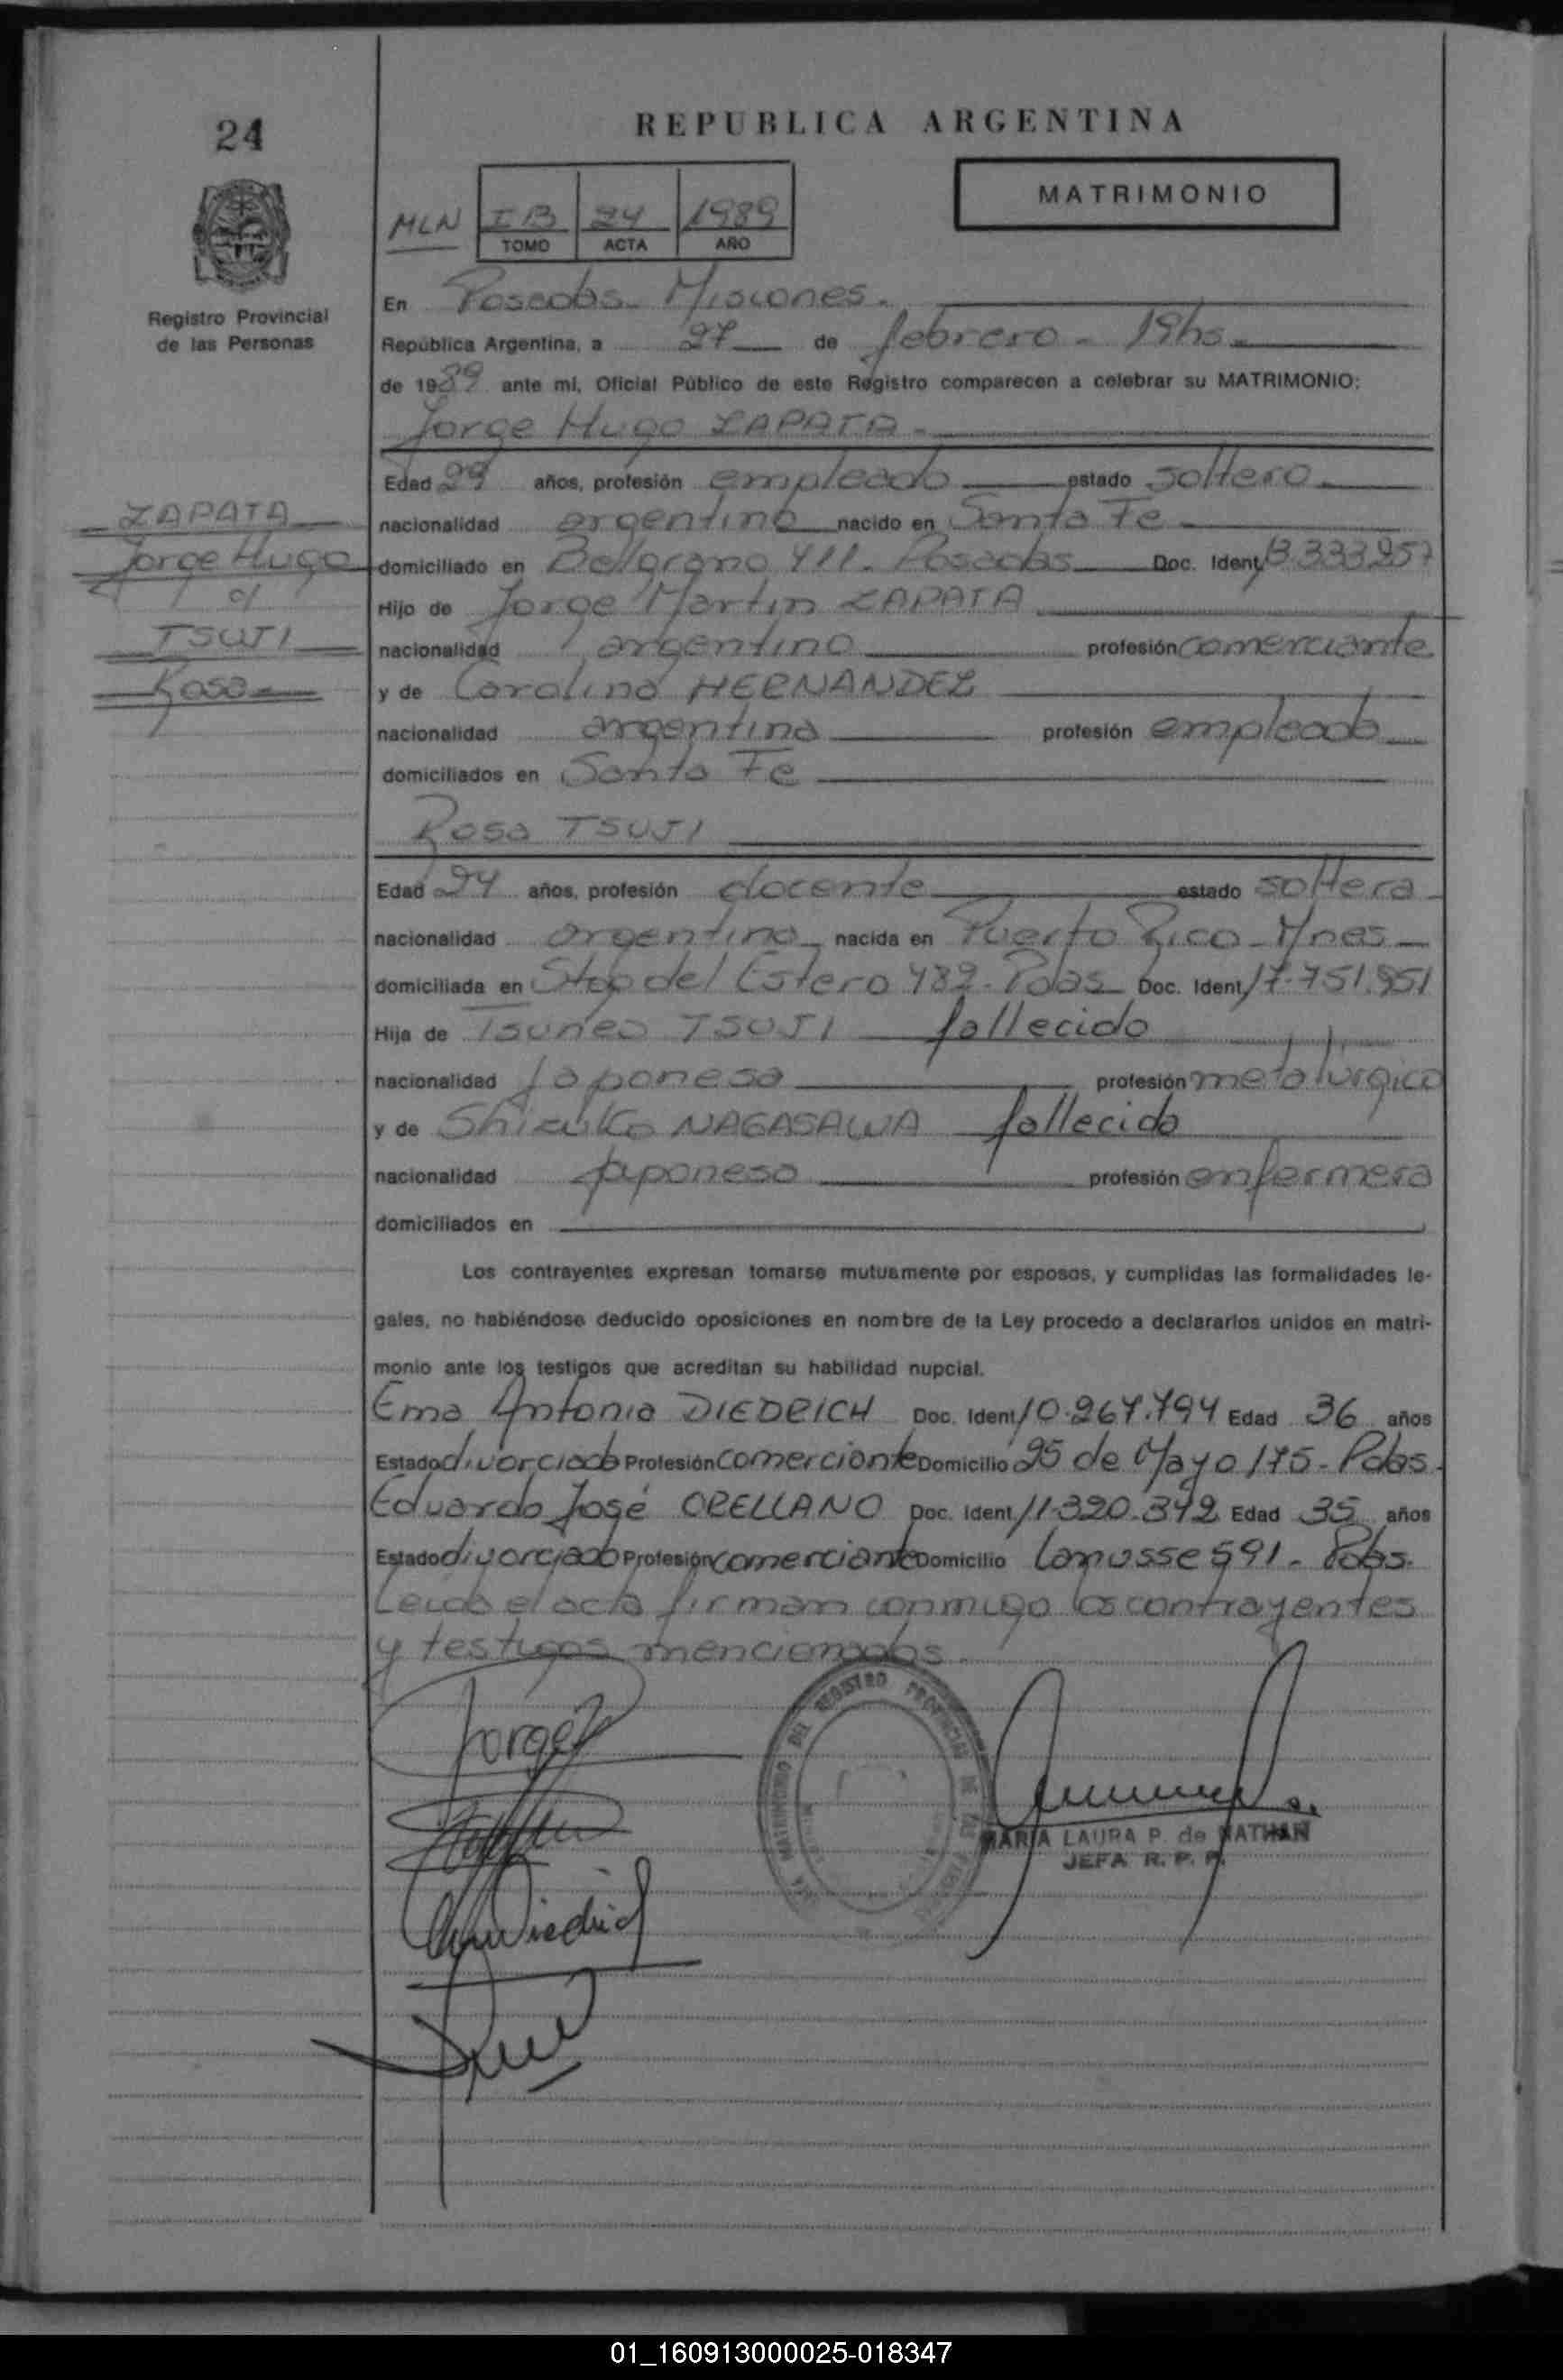 24
REPUBLICA ARGENTINA
MATRIMONIO
MLN
I B 24 1989
TOMO ACTA AÑO
Registro Provincial
de las Personas
En Posadas - Misiones.
República Argentina, a 27 de febrero - 19hs.
de 1989 ante mí, Oficial Público de este Registro comparecen a celebrar su MATRIMONIO:
Jorge Hugo ZAPATA
Edad 29 años, profesión empleado estado soltero
ZAPATA
Jorge Hugo
c/
TSUJI
Rosa
nacionalidad argentina nacido en Santa Fe
domiciliado en Belgrano 411. Posadas Doc. Ident. 13.333.957
Hijo de Jorge Martin ZAPATA
nacionalidad argentina profesión comerciante
y de Carolina HERNANDEZ
nacionalidad argentina profesión empleada
domiciliados en Santa Fe
Rosa TSUJI
Edad 24 años, profesión docente estado soltera
nacionalidad argentina nacida en Puerto Rico - Mnes
domiciliada en Stgo del Estero 489 - Pdas Doc. Ident. 17.751.951
Hija de Tsuneo TSUJI fallecido
nacionalidad japonesa profesión metalurgico
y de Shizuko NAGASAWA fallecida
nacionalidad japonesa profesión enfermera
domiciliados en
Los contrayentes expresan tomarse mutuamente por esposos, y cumplidas las formalidades le-
gales, no habiéndose deducido oposiciones en nombre de la Ley procedo a declararlos unidos en matri-
monio ante los testigos que acreditan su habilidad nupcial.
Ema Antonia DIEDRICH Doc. Ident. 10.267.794 Edad 36 años
Estado divorciada Profesión comerciante Domicilio 25 de Mayo 175 - Pdas.
Eduardo José ORELLANO Doc. Ident. 11.320.342 Edad 35 años
Estado divorciado Profesión comerciante Domicilio Lanusse 591 - Pdas.
Leida el acta firman conmigo los contrayentes
y testigos mencionados.
Jorge
MATRIMONIO DEL REGISTRO PROVINCIAL DE LAS
MARIA LAURA P. de NATHAN
JEFA R. P. P.
01_160913000025-018347